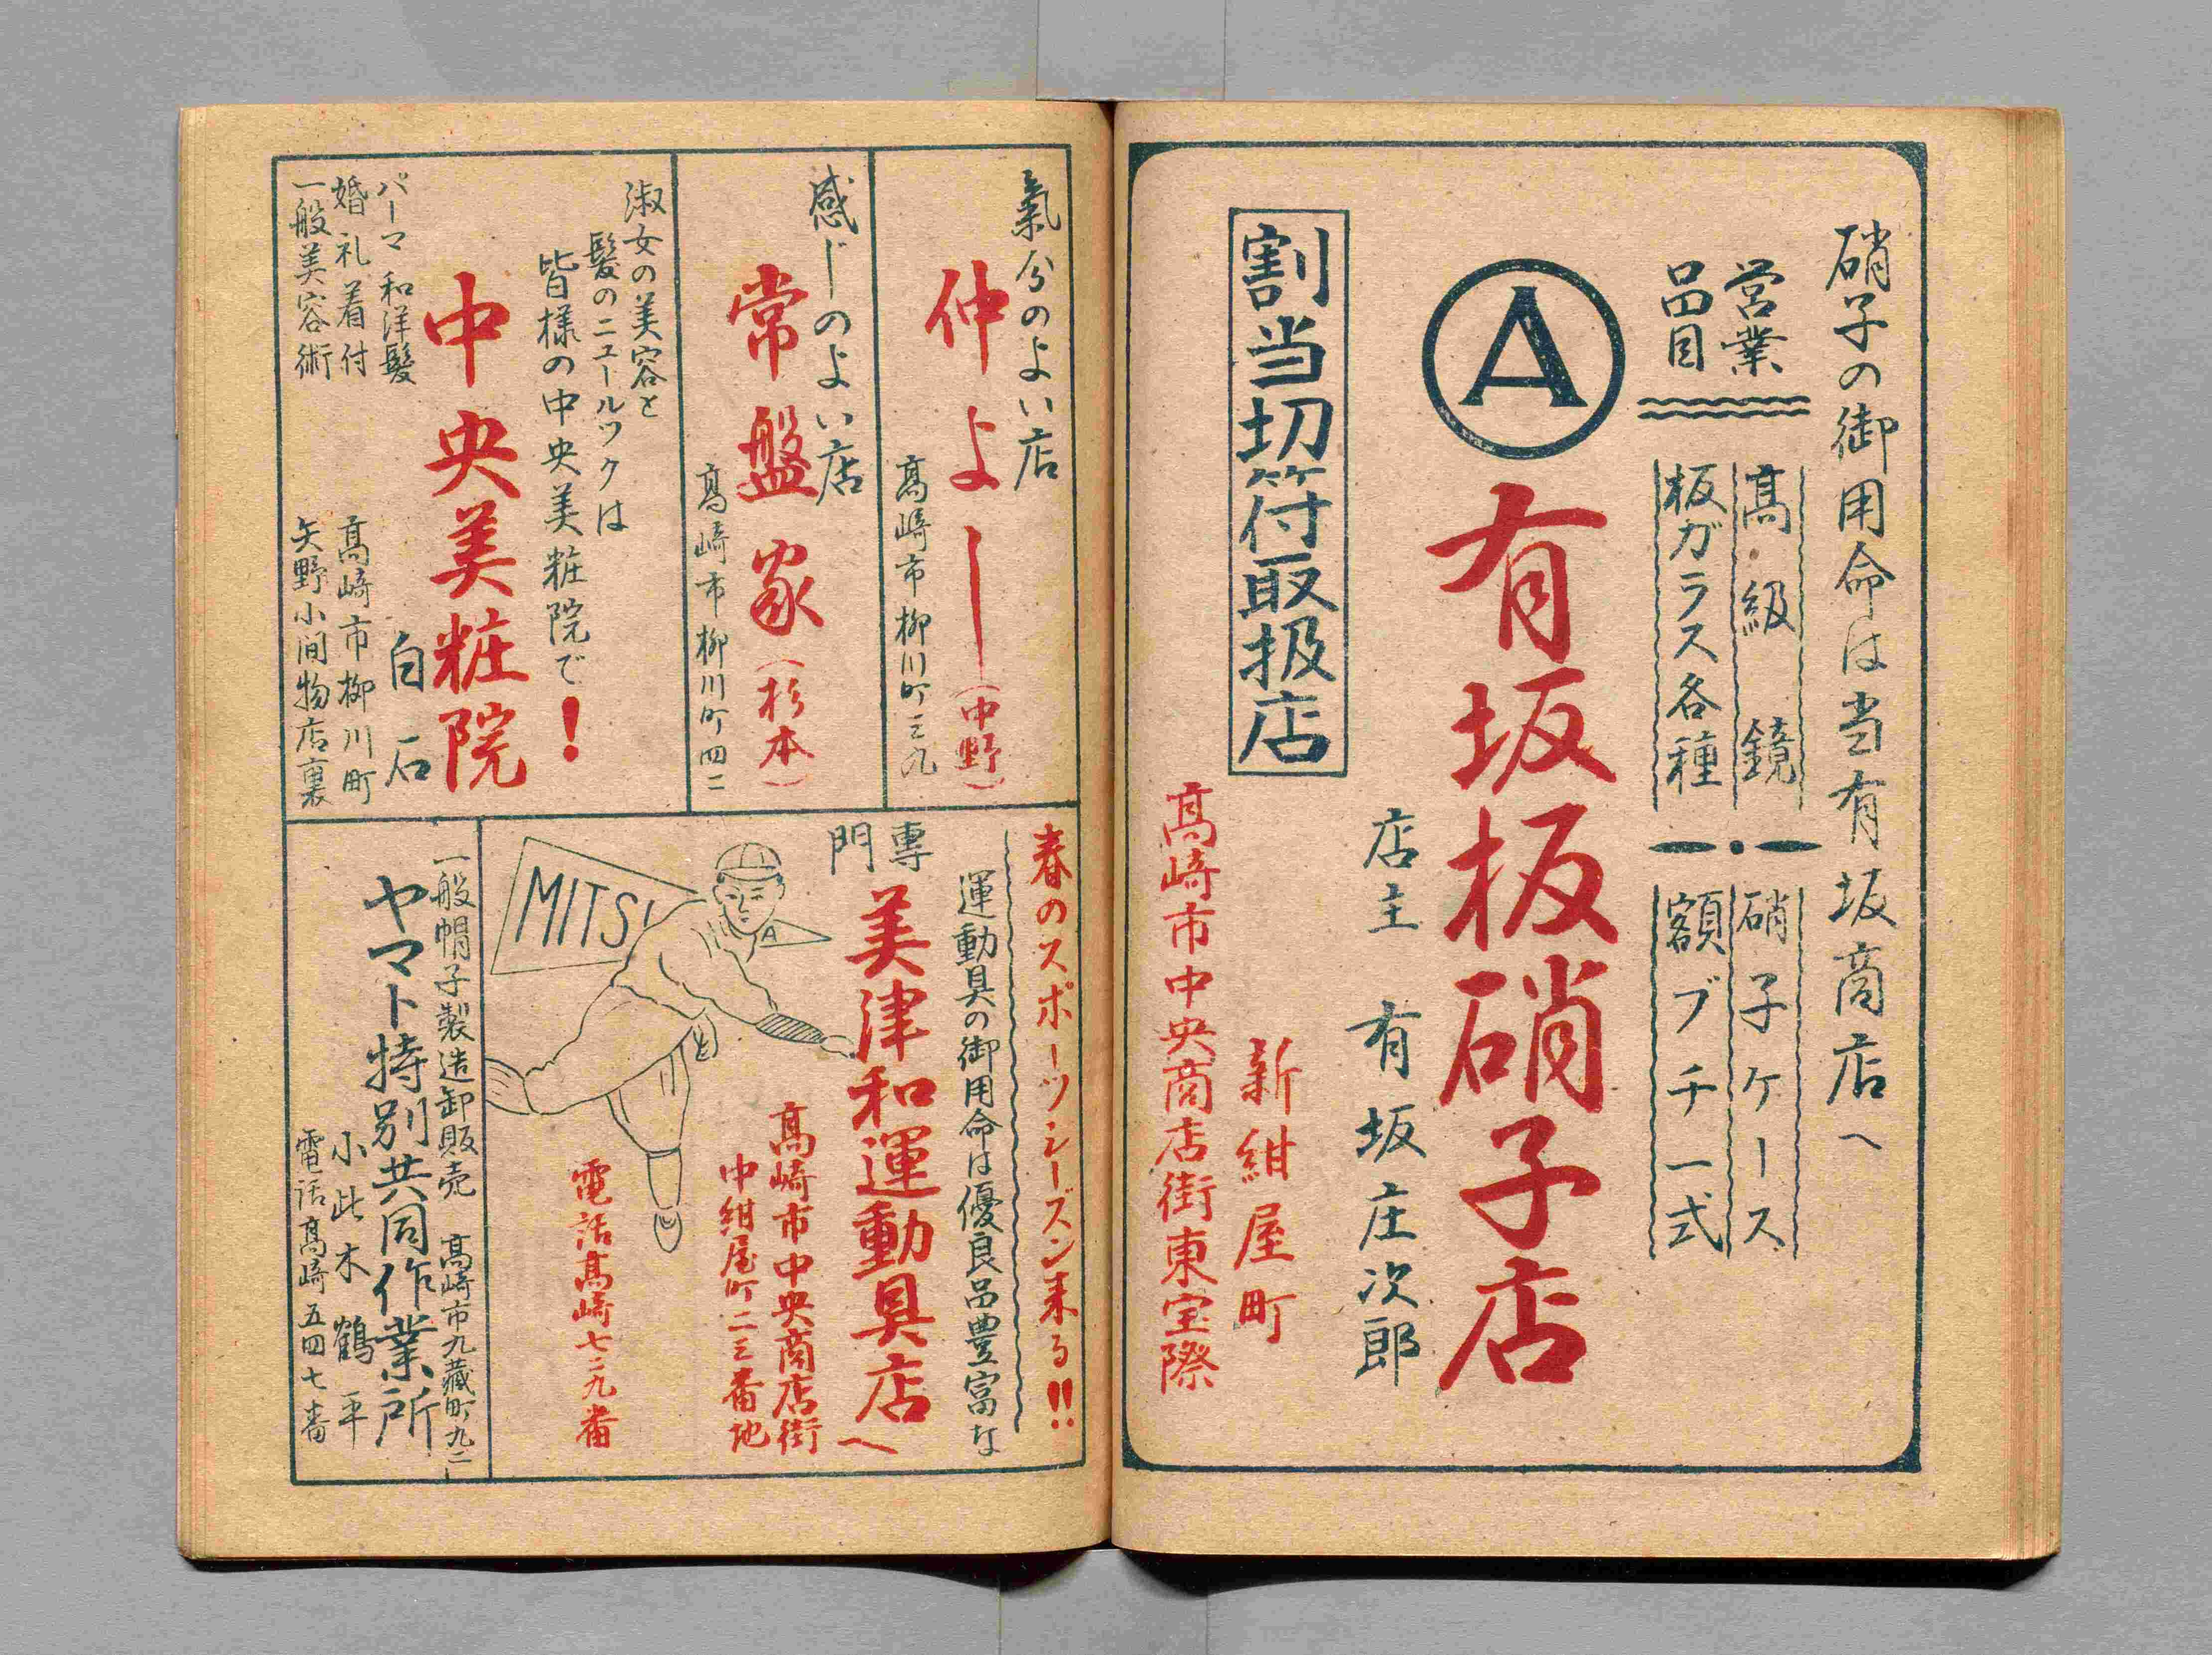 硝子の御用命は当有坂商店へ
営業
品目
高級鏡
板ガラス各種
硝子ケース
額ブチ一式
A
有坂板硝子店
店主 有坂庄次郎
割当切符取扱店
新紺屋町
高崎市中央商店街東宝際
氣分のよい店
仲よし(中野)
高崎市柳川町三九
感じのよい店
常盤家(杉本)
高崎市柳川町四二
淑女の美容と
髪のニュールックは
皆様の中央美粧院で!
中央美粧院
白石
パーマ 和洋髪
婚礼着付
一般美容術
高崎市柳川町
矢野小間物店裏
春のスポーツシーズン来る!!
運動具の御用命は優良品豊富な
専門
美津和運動具店へ
高崎市中央商店街
中紺屋町二三番地
電話高崎七二九番
MITSU
A
一般帽子製造卸販売 高崎市九蔵町九二
ヤマト特別共同作業所
小此木鶴平
電話高崎五四七番